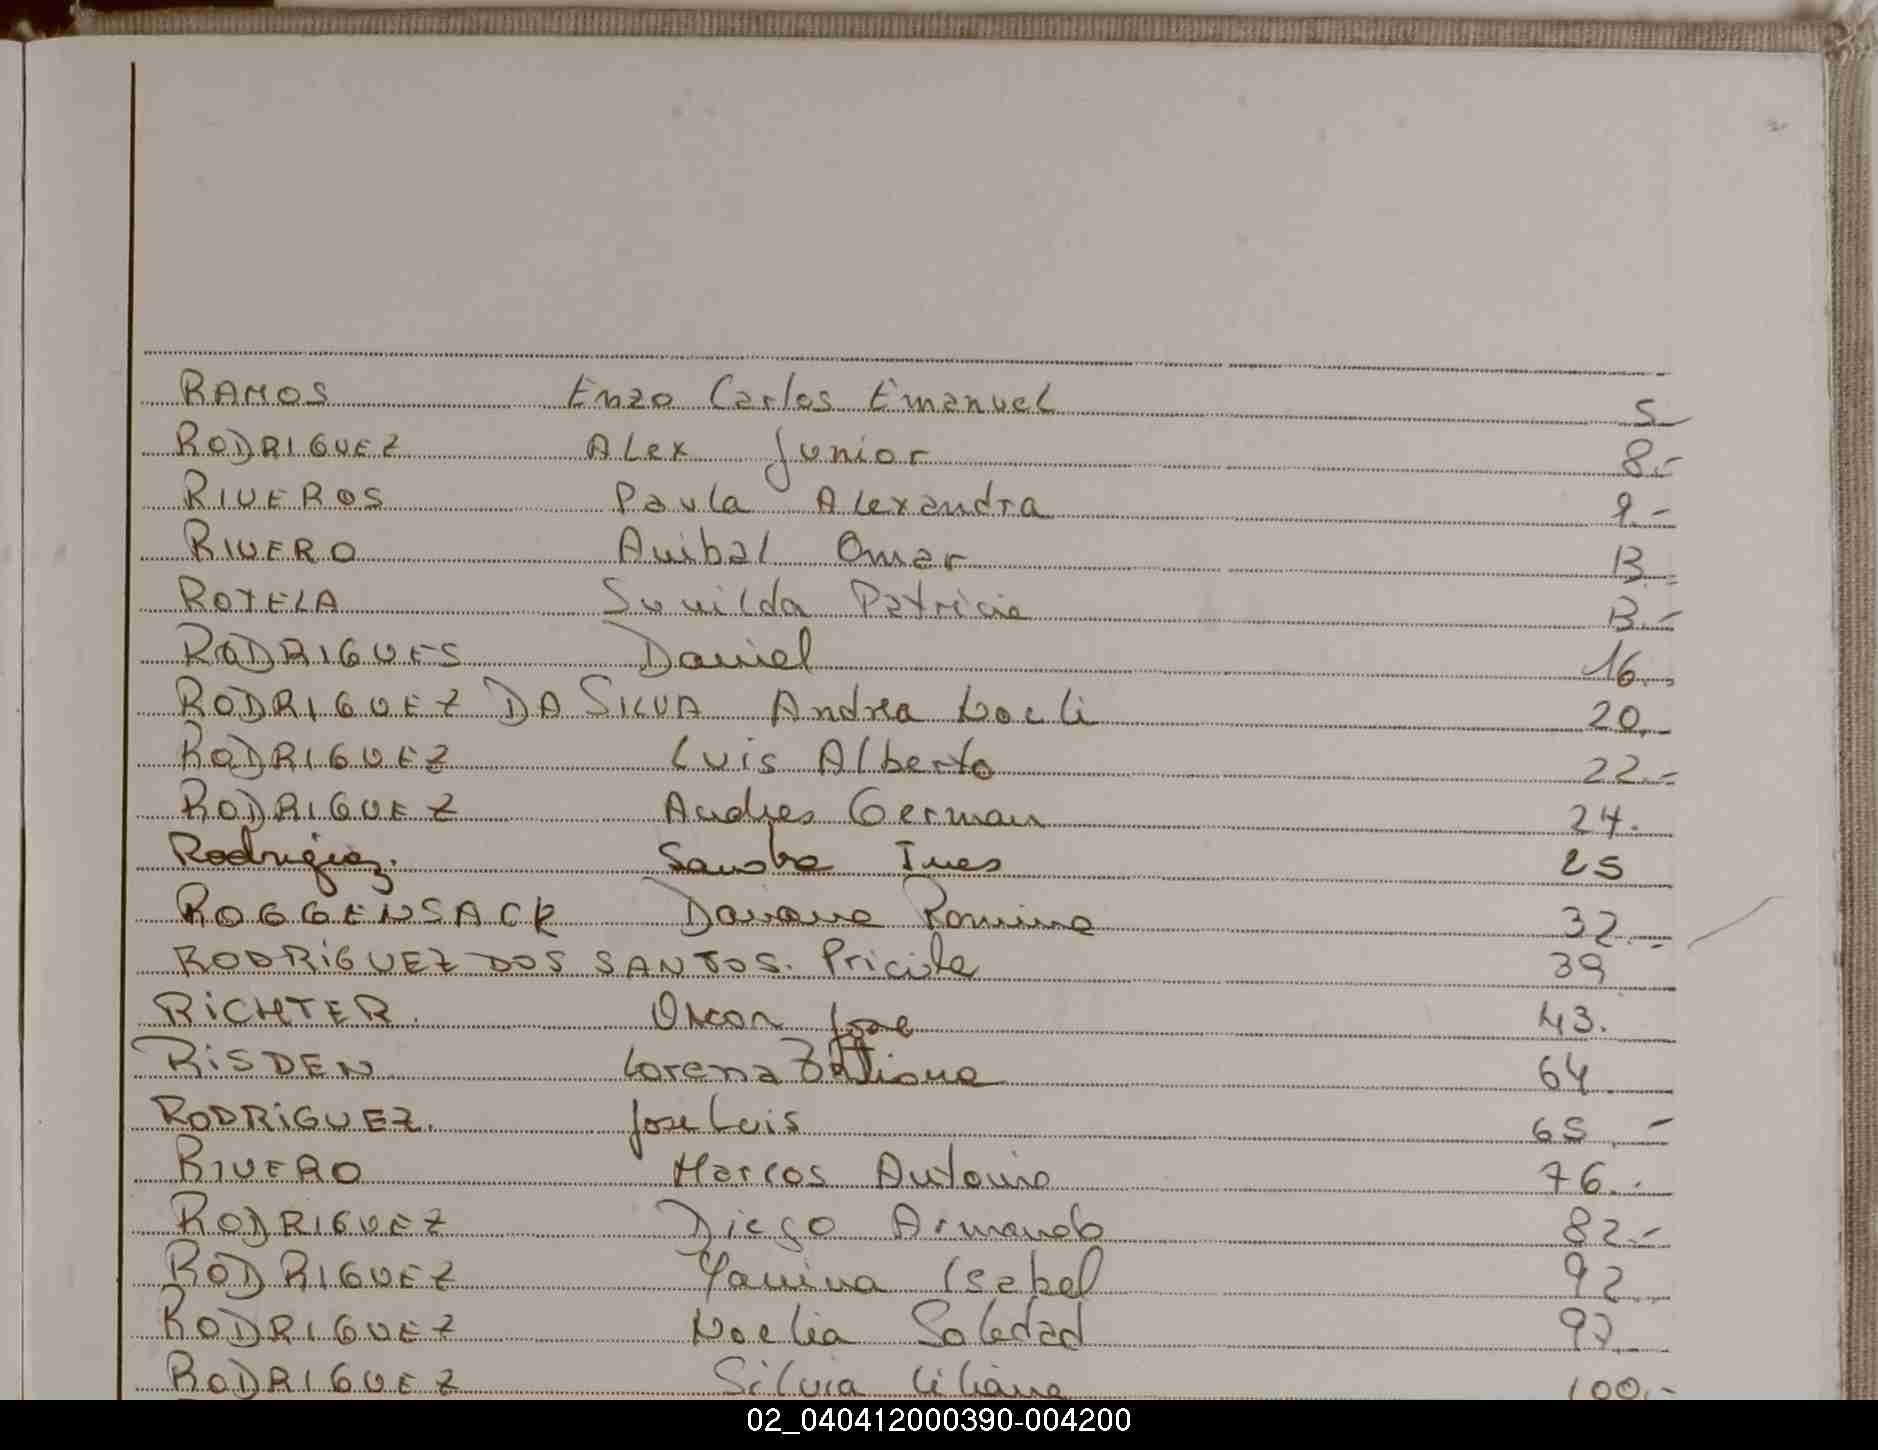 RAMOS Enzo Carlos Emanuel 5
RODRIGUEZ Alex Junior 8.-
RIVEROS Paula Alexandra 9.-
RIVERO Anibal Omar 13.-
ROTELA Sunilda Patricia 13.-
RODRIGUES Daniel 16.-
RODRIGUEZ DA SILVA Andrea Noeli 20.-
RODRIGUEZ Luis Alberto 22.-
RODRIGUEZ Andres German 24.
Rodriguez. Sandra Ines 25
ROGGENSACK Daiana Romina 32.-
RODRiGUEZ DOS SANTOS. Pricila 39
RiCHTER. Oscar Jose 43.
RiSDEN Lorena 64
RODRiGUEZ. Jose Luis 65.-
RIVERO Marcos Antonio 76.-
RODRIGUEZ Diego Armando 82.-
RODRIGUEZ Yanina Isabel 92
RODRIGUEZ Noelia Soledad 97
RODRIGUEZ Silvia Liliana 100.-
02_040412000390-004200